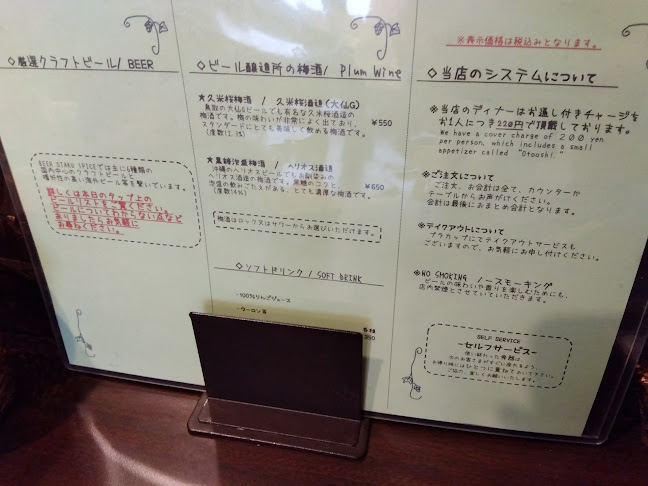 ◇厳選クラフトビール/ BEER
BEER STAND SPICEでは主に6種類の
国内中心のクラフトビールと
個性色の高い海外ビール等を繋いでいます。
詳しくは本日のタップ上の
ビールリストをご覧ください。
ビールについてわからない点など
ありましたらお気軽に
お尋ねください。
◇ビール醸造所の梅酒/ Plum Wine
★久米桜梅酒 / 久米桜酒造(大山G) ¥550
鳥取の大山Gビールでも有名な久米桜酒造の
梅酒です。梅の味わいが非常によく出ており、
スタンダードにとても美味しく飲める梅酒です。
(度数12.3%)
★黒糖泡盛梅酒 / ヘリオス酒造 ¥650
沖縄のヘリオスビールでもお馴染みの
ヘリオス酒造の梅酒です。黒糖のコクと
泡盛の飲みごたえがある、とても濃厚な梅酒です。
(度数14%)
梅酒はロック又はサワーからお選びいただけます。
◇ソフトドリンク / SOFT DRINK
-100%りんごジュース
-ウーロン茶
350
※表示価格は税込みとなります。
◇当店のシステムについて
※当店のディナーはお通し付きチャージを
お1人につき220円で頂戴しております。
We have a cover charge of 200 yen
per person, which includes a small
appetizer called "Otooshi."
※ご注文について
ご注文、お会計は全て、カウンターか
テーブルからお声がけください。
会計は最後におまとめ会計となります。
※テイクアウトについて
プラカップにてテイクアウトサービスも
ございますので、お気軽にお申し付けください。
※NO SMOKING ノースモーキング
ビールの味わいや香りを楽しむためにも、
店内禁煙とさせていただきます。
SELF SERVICE
-セルフサービス-
使い終わった食器は、
次のお客さまがすぐに座れるよう、
お帰り際にはひとつに重ねておいて下さい。
ご協力、宜しくお願いいたします。